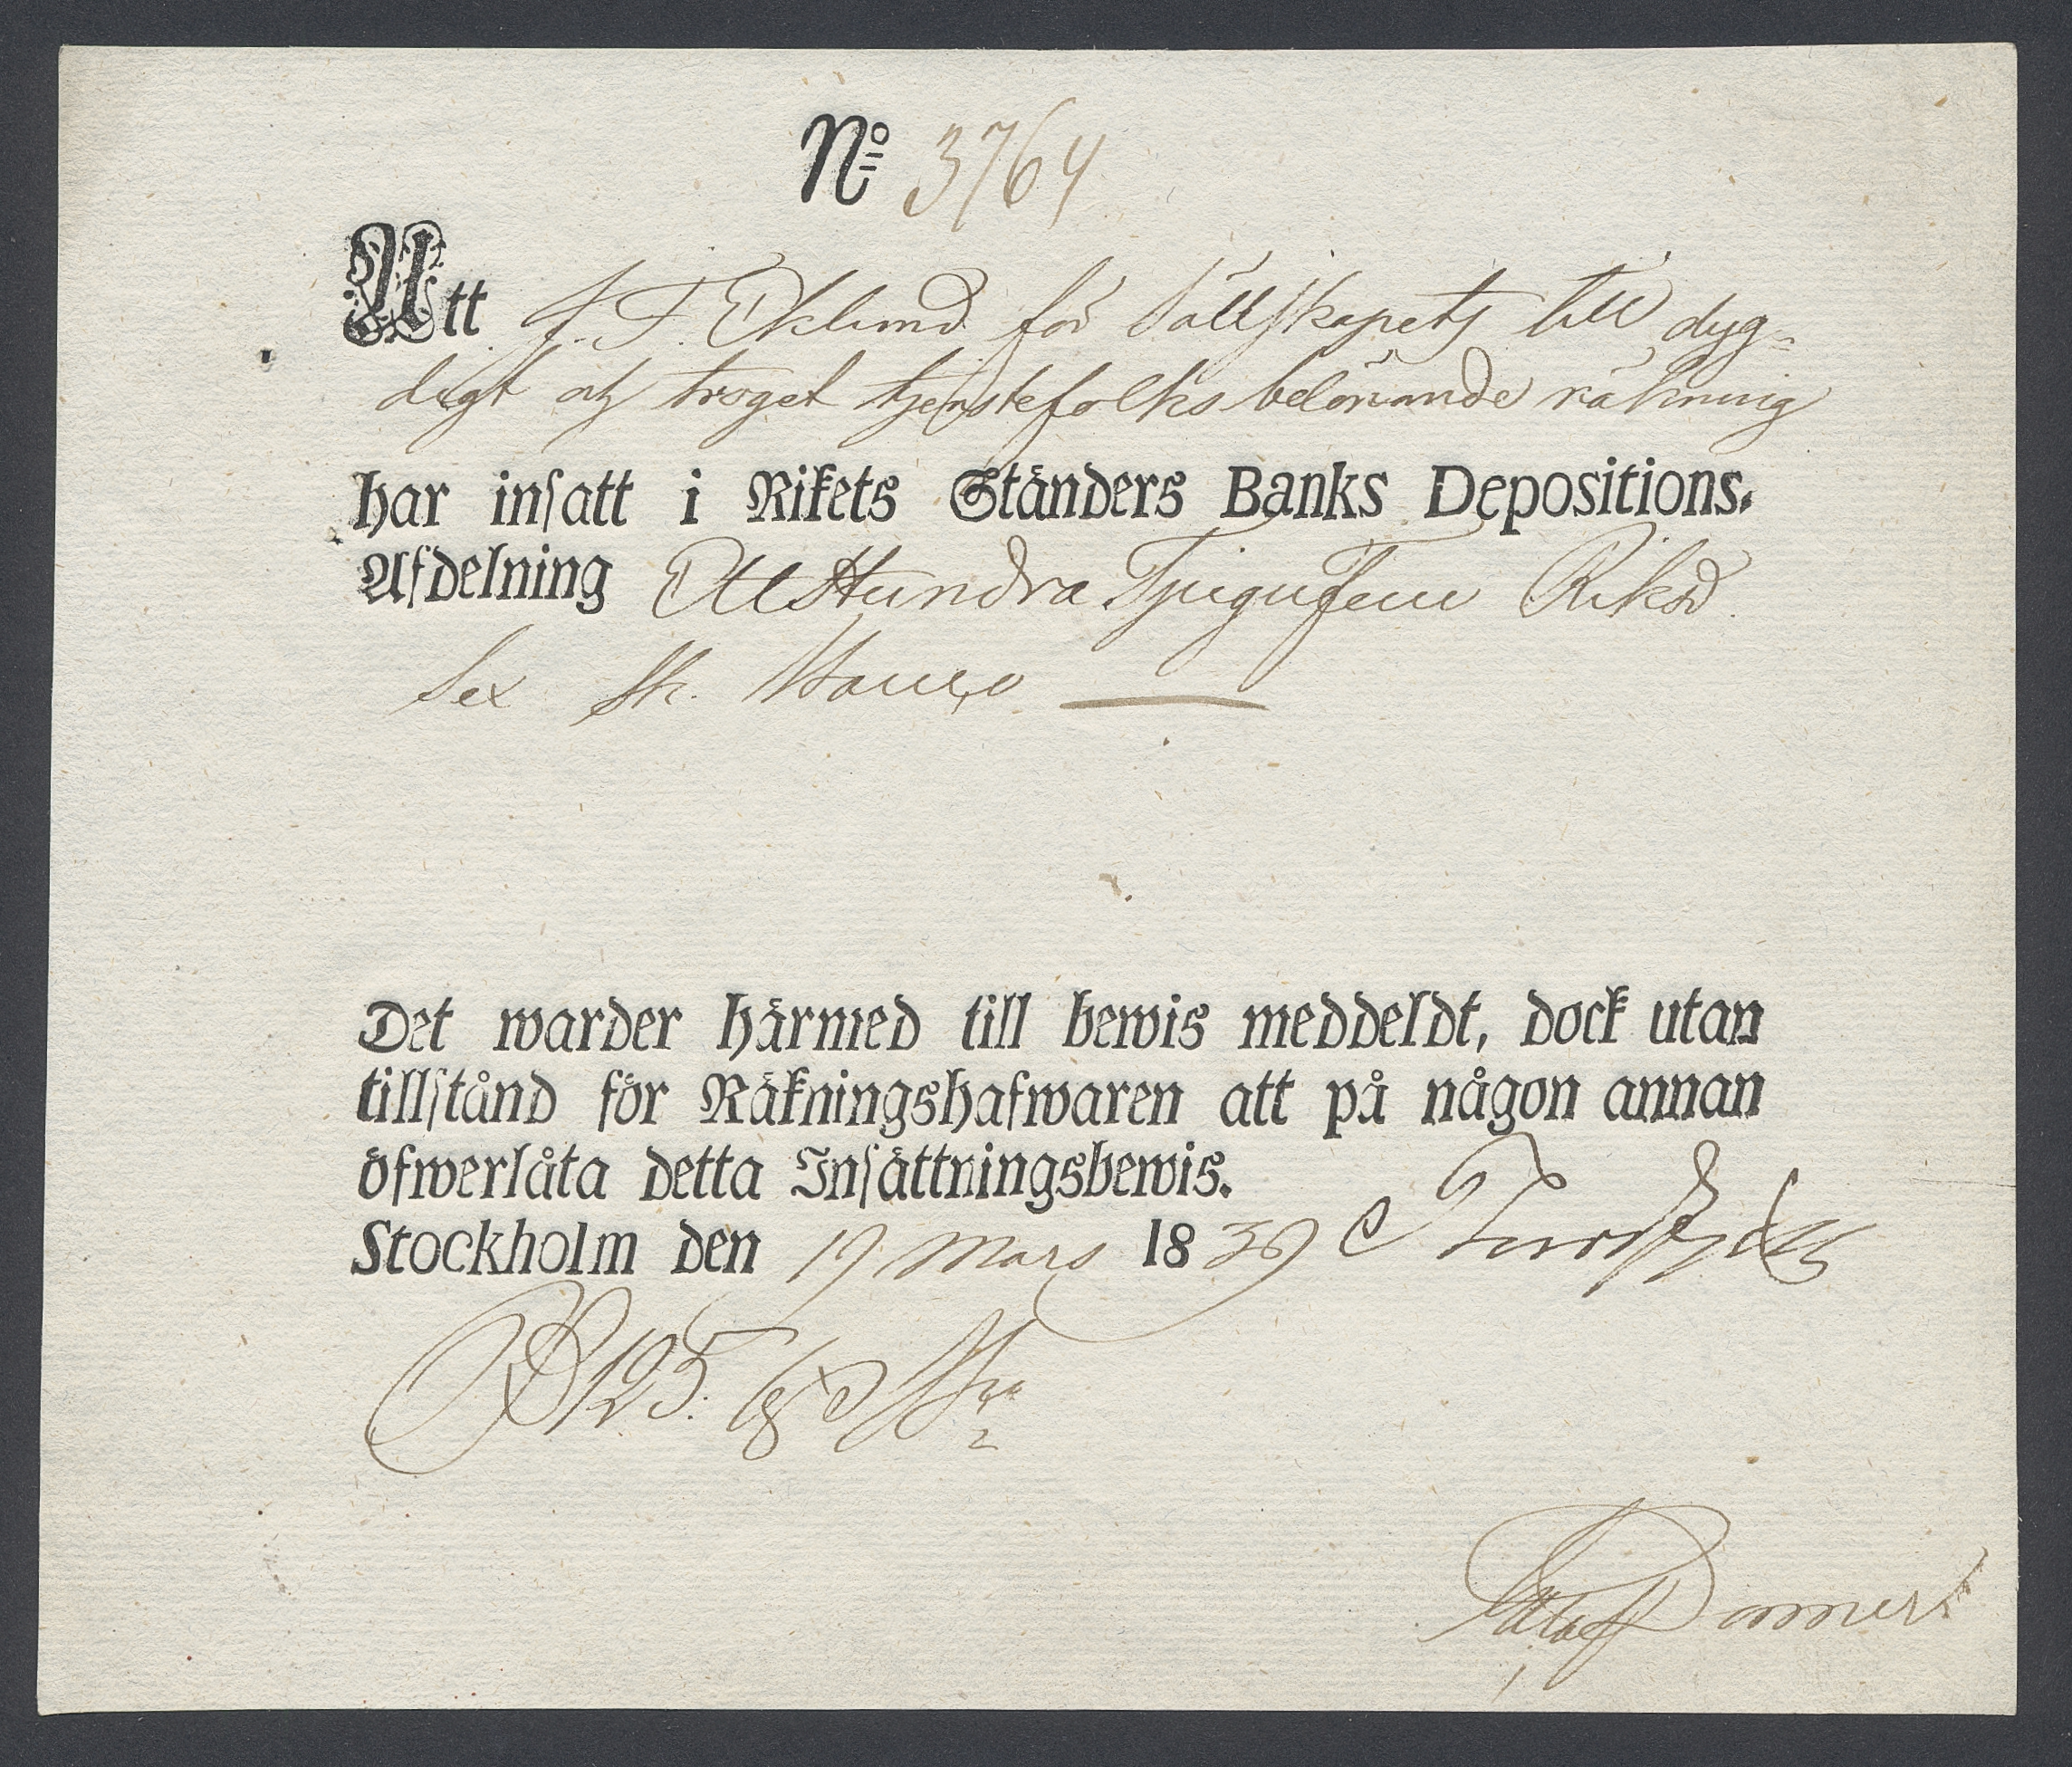 No 3764
Att J. F. Eklund för Sällskapets till dyg-
digt och troget tjenstefolks belönande räkning
har insatt i Rikets Ständers Banks Depositions-
Afdelning Ett Hundra Tjugufem Riksd
Sex sk. Banco
Det warder härmed till bewis meddeldt, dock utan
tillstånd för Räkningshafwaren att på någon annan
öfwerlåta detta Insättningsbewis.
Stockholm den 19 Mars 1839
RD 125. 6